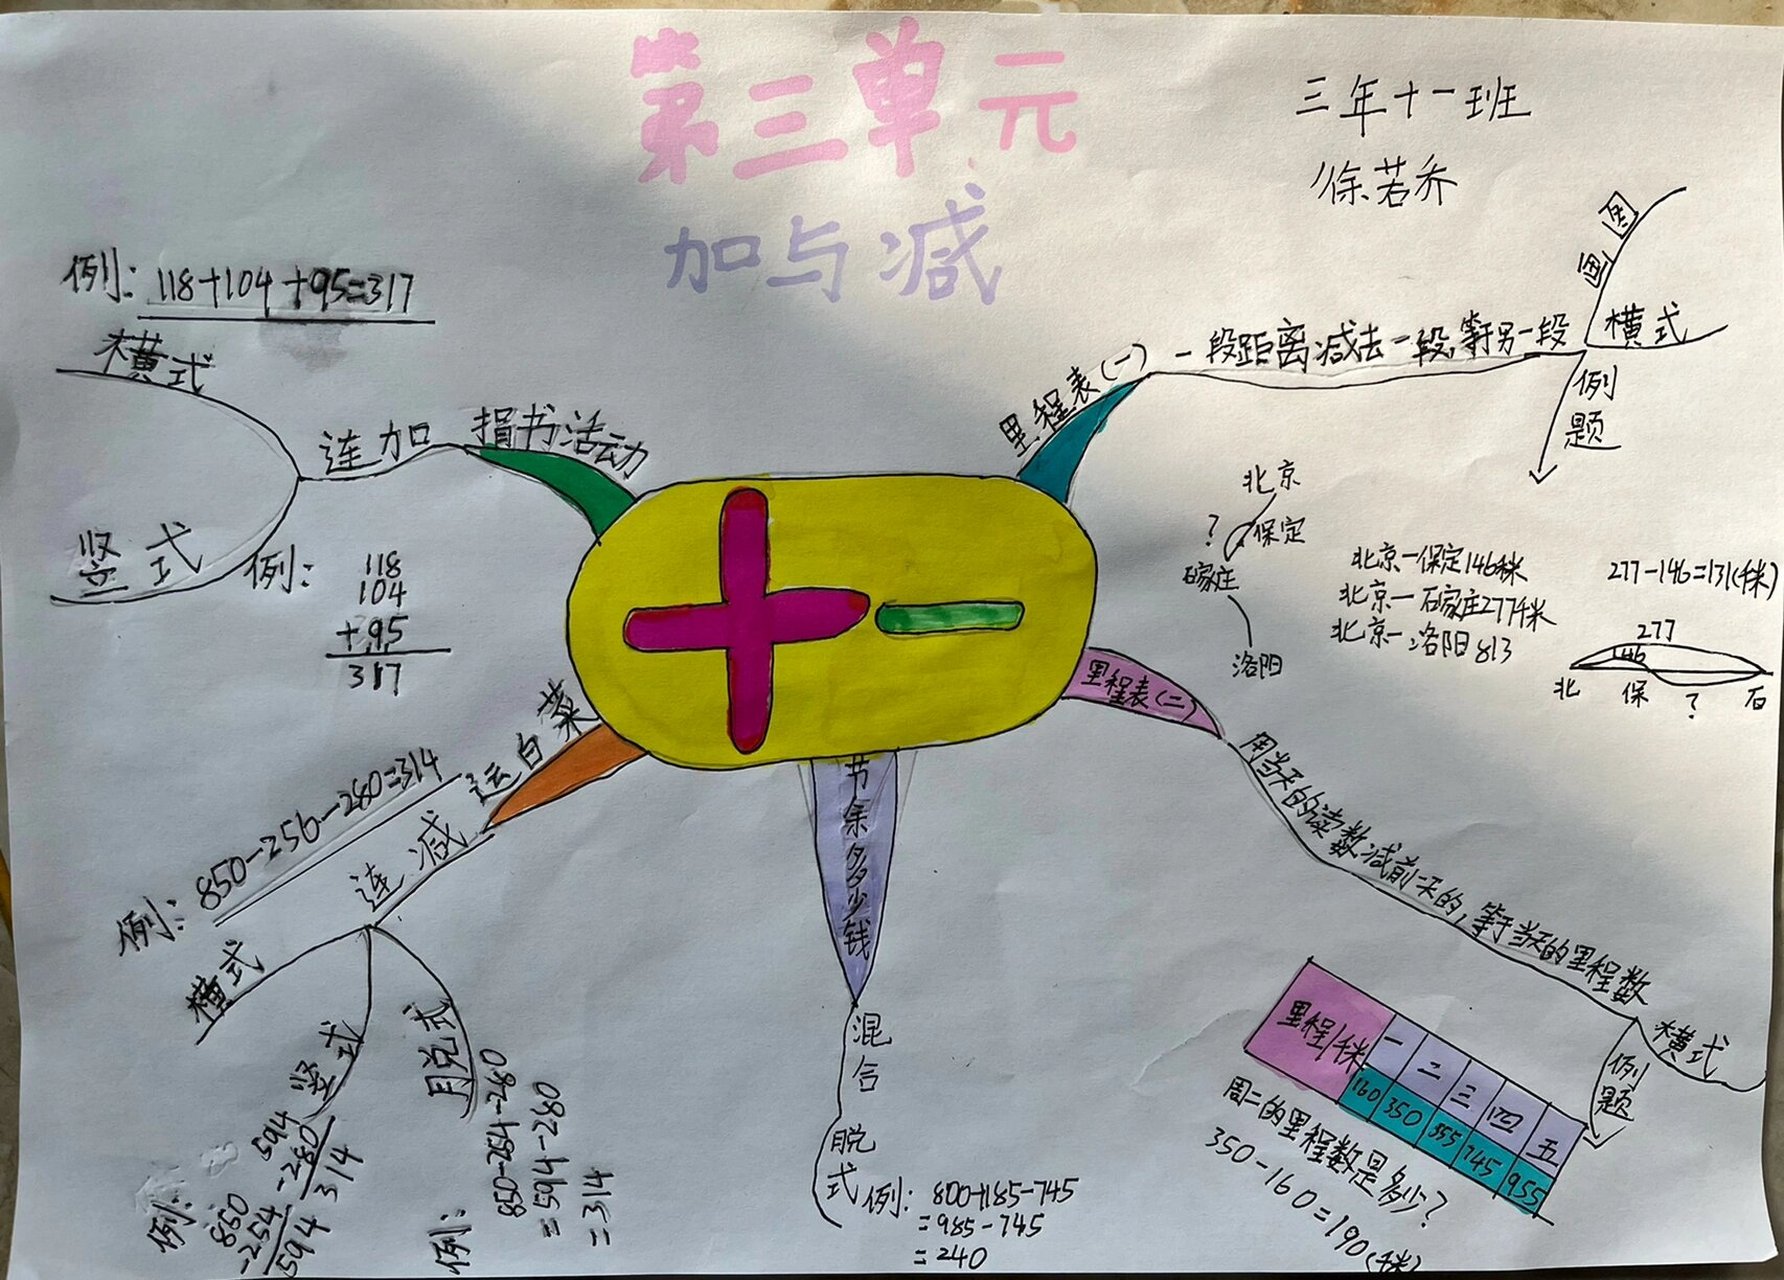 第三单元
加与减
三年十一班
徐若乔
例：118+104+95=317
横式
连加
捐书活动
竖式
例：
118
104
+95
317
运白菜
连减
例：850-256-280=314
横式
竖式
脱式
例：
850
-254
594
594
-280
314
例：
850-254-280
=594-280
=314
节余多少钱
混合
脱式
例：800+185-745
=985-745
=240
里程表(一)
一段距离减去一段,等于另一段
画图
横式
例题
北京
?
保定
石家庄
洛阳
北京一保定146千米
北京一石家庄277千米
北京一洛阳813
277-146=131(千米)
277
146
北 保 ? 石
里程表(二)
用当天的读数减前一天的,等于当天的里程数
横式
例题
里程/千米 一 二 三 四 五
160 350 555 745 955
周二的里程数是多少?
350-160=190(千米)